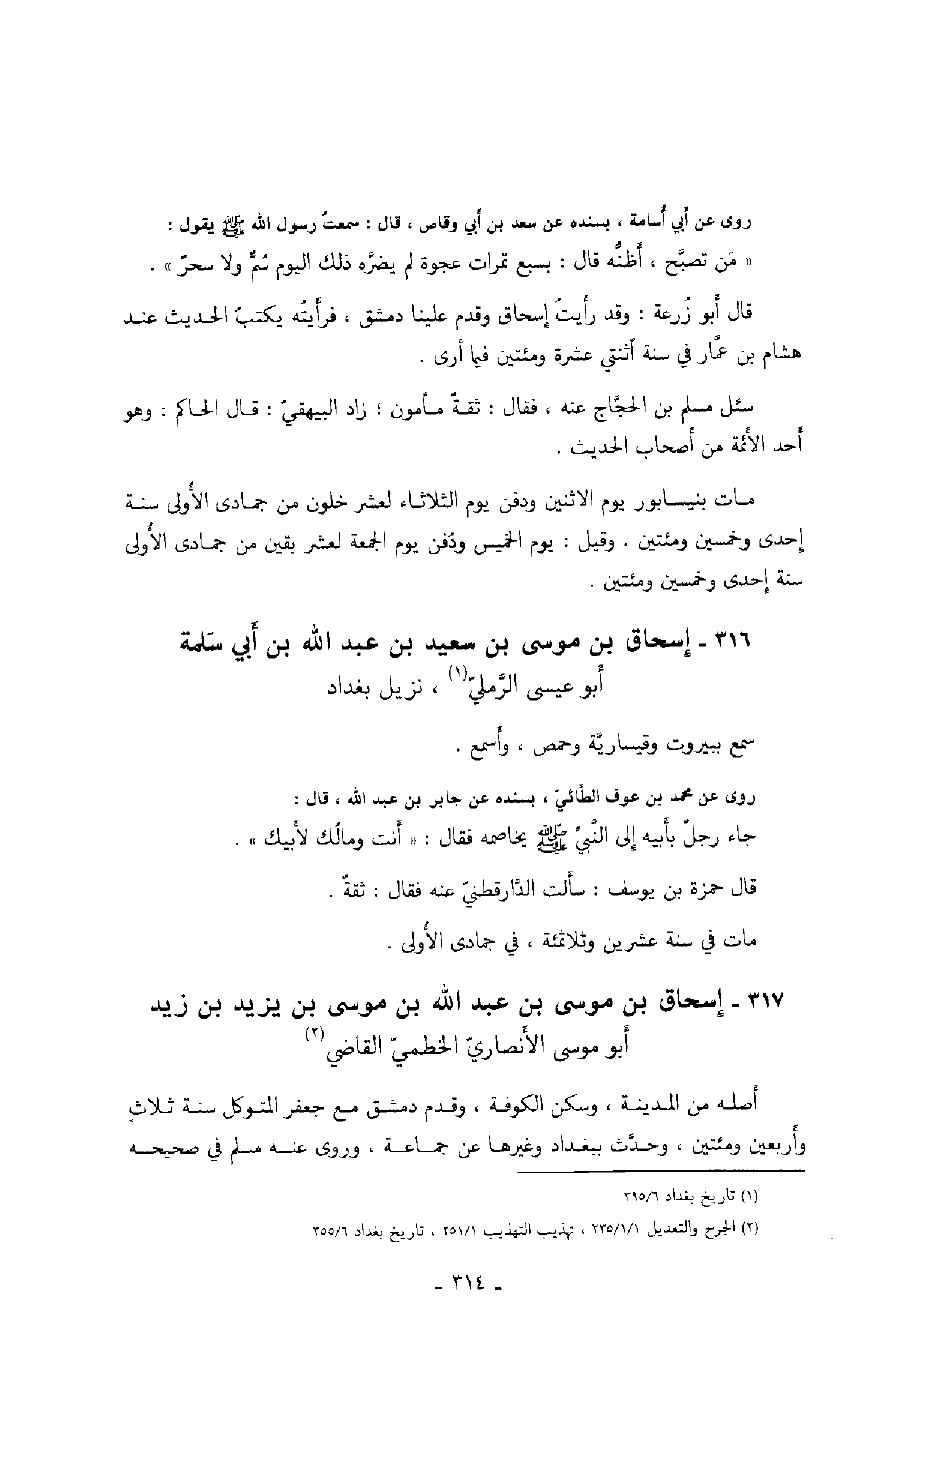 روى عن أبي أسامة ، بسنده عن سعد بن أبي وقاص ، قال : سمعتُ رسول الله ﷺ يقول :
« مَن تصبَّح ، أظنُّه قال : بسبع تمرات عجوة لم يضرَّه ذلك اليوم سُمٌّ ولا سحرٌ » .
قال أبو زُرعة : وقد رأيتُ إسحاق وقدم علينا دمشق ، فرأيتُه يكتبُ الحديث عند
هشام بن عمَّار في سنة أثنتي عشرة ومئتين فيما أرى .
سئل مسلم بن الحجَّاج عنه ، فقال : ثقةٌ مأمون ؛ زاد البيهقيّ : قال الحاكم : وهو
أحد الأئمة من أصحاب الحديث .
مات بنيسابور يوم الاثنين ودفن يوم الثلاثاء لعشر خلون من جمادى الأولى سنة
إحدى وخمسين ومئتين . وقيل : يوم الخميس ودُفن يوم الجمعة لعشر بقين من جمادى الأولى
سنة إحدى وخمسين ومئتين .
٣١٦ ـ إسحاق بن موسى بن سعيد بن عبد الله بن أبي سَلمة
أبو عيسى الرَّمليّ(١) ، نزيل بغداد
سمع ببيروت وقيساريَّة وحمص ، وأسمع .
روى عن محمد بن عوف الطَّائيّ ، بسنده عن جابر بن عبد الله ، قال :
جاء رجلٌ بأبيه إلى النَّبيّ ﷺ يخاصمه فقال : « أنت ومالُك لأبيك » .
قال حمزة بن يوسف : سألت الدَّارقطنيّ عنه فقال : ثقةٌ .
مات في سنة عشرين وثلاثمئة ، في جمادى الأولى .
٣١٧ ـ إسحاق بن موسى بن عبد الله بن موسى بن يزيد بن زيد
أبو موسى الأنصاريّ الخطميّ القاضي(٢)
أصله من المدينة ، وسكن الكوفة ، وقدم دمشق مع جعفر المتوكل سنة ثلاثٍ
وأربعين ومئتين ، وحدَّث ببغداد وغيرها عن جماعة ، وروى عنه مسلم في صحيحه
(١) تاريخ بغداد ٣٩٥/٦
(٢) الجرح والتعديل ٢٣٥/١/١ ، تهذيب التهذيب ٢٥١/١ ، تاريخ بغداد ٣٥٥/٦
ـ ٣١٤ ـ